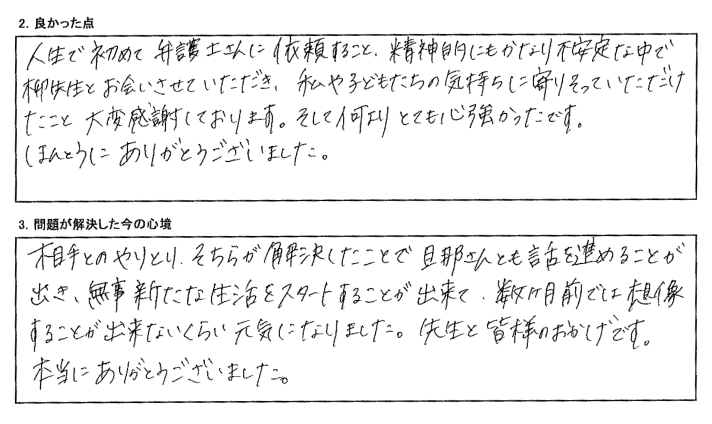 2. 良かった点
人生で初めて弁護士さんに依頼すること、精神的にもかなり不安定な中で
柳先生とお会いさせていただき、私や子どもたちの気持ちに寄りそっていただけ
たこと大変感謝しております。そして何よりとても心強かったです。
ほんとうにありがとうございました。
3. 問題が解決した今の心境
相手とのやりとり、そちらが解決したことで旦那さんとも話を進めることが
出き、無事新たな生活をスタートすることが出来て、数ヶ月前では想像
することが出来ないくらい元気になりました。先生と皆様のおかげです。
本当にありがとうございました。